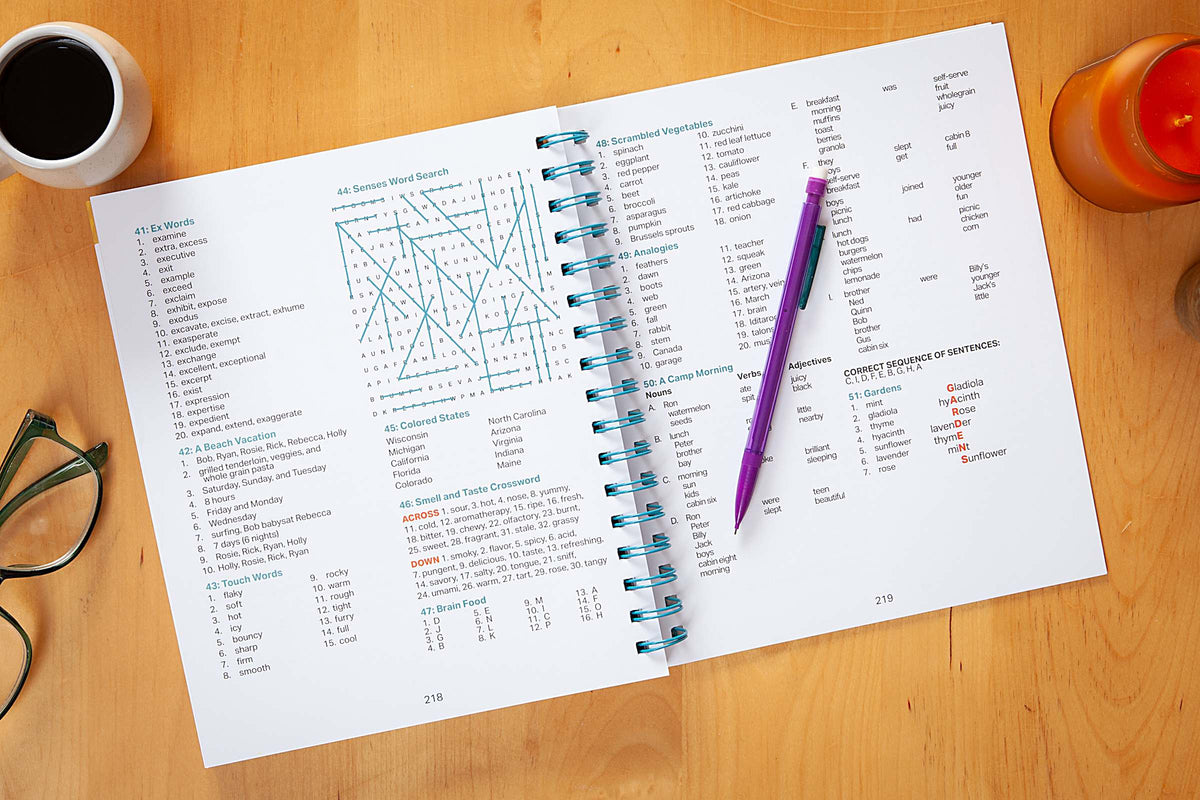 41: Ex Words
1. examine
2. extra, excess
3. executive
4. exit
5. example
6. exceed
7. exclaim
8. exhibit, expose
9. exodus
10. excavate, excise, extract, exhume
11. exasperate
12. exclude, exempt
13. exchange
14. excellent, exceptional
15. excerpt
16. exist
17. expression
18. expertise
19. expedient
20. expand, extend, exaggerate
42: A Beach Vacation
1. Bob, Ryan, Rosie, Rick, Rebecca, Holly
2. grilled tenderloin, veggies, and
whole grain pasta
3. Saturday, Sunday, and Tuesday
4. 8 hours
5. Friday and Monday
6. Wednesday
7. surfing, Bob babysat Rebecca
8. 7 days (6 nights)
9. Rosie, Rick, Ryan, Holly
10. Holly, Rosie, Rick, Ryan
43: Touch Words
1. flaky
2. soft
3. hot
4. icy
5. bouncy
6. sharp
7. firm
8. smooth
9. rocky
10. warm
11. rough
12. tight
13. furry
14. full
15. cool
44: Senses Word Search
45: Colored States
Wisconsin
Michigan
California
Florida
Colorado
North Carolina
Arizona
Virginia
Indiana
Maine
46: Smell and Taste Crossword
ACROSS 1. sour, 3. hot, 4. nose, 8. yummy,
11. cold, 12. aromatherapy, 15. ripe, 16. fresh,
18. bitter, 19. chewy, 22. olfactory, 23. burnt,
25. sweet, 28. fragrant, 31. stale, 32. grassy
DOWN 1. smoky, 2. flavor, 5. spicy, 6. acid,
7. pungent, 9. delicious, 10. taste, 13. refreshing,
14. savory, 17. salty, 20. tongue, 21. sniff,
24. umami, 26. warm, 27. tart, 29. rose, 30. tangy
47: Brain Food
1. D
2. J
3. G
4. B
5. E
6. N
7. L
8. K
9. M
10. I
11. C
12. P
13. A
14. F
15. O
16. H
218
48: Scrambled Vegetables
1. spinach
2. eggplant
3. red pepper
4. carrot
5. beet
6. broccoli
7. asparagus
8. pumpkin
9. Brussels sprouts
10. zucchini
11. red leaf lettuce
12. tomato
13. cauliflower
14. peas
15. kale
16. artichoke
17. red cabbage
18. onion
49: Analogies
1. feathers
2. dawn
3. boots
4. web
5. green
6. fall
7. rabbit
8. stem
9. Canada
10. garage
11. teacher
12. squeak
13. green
14. Arizona
15. artery, vein
16. March
17. brain
18.
19.
20.
50: A Camp Morning
Nouns
A. Ron
watermelon
seeds
B. lunch
Peter
brother
bay
C. morning
sun
kids
cabin six
D. Ron
Peter
Billy
Jack
boys
cabin eight
morning
Verbs
ate
were
slept
Adjectives
juicy
black
little
nearby
brilliant
sleeping
teen
beautiful
E. breakfast
morning
muffins
toast
berries
granola
was
self-serve
fruit
wholegrain
juicy
F. they
breakfast
slept
get
cabin 8
full
boys
picnic
lunch
joined
younger
older
fun
lunch
hot dogs
burgers
watermelon
chips
lemonade
had
picnic
chicken
corn
I. brother
Ned
Quinn
Bob
brother
Gus
cabin six
were
Billy's
younger
Jack's
little
CORRECT SEQUENCE OF SENTENCES:
C, I, D, F, E, B, G, H, A
51: Gardens
1. mint
2. gladiola
3. thyme
4. hyacinth
5. sunflower
6. lavender
7. rose
Gladiola
hyAcinth
Rose
lavenDer
thymE
miNt
Sunflower
219